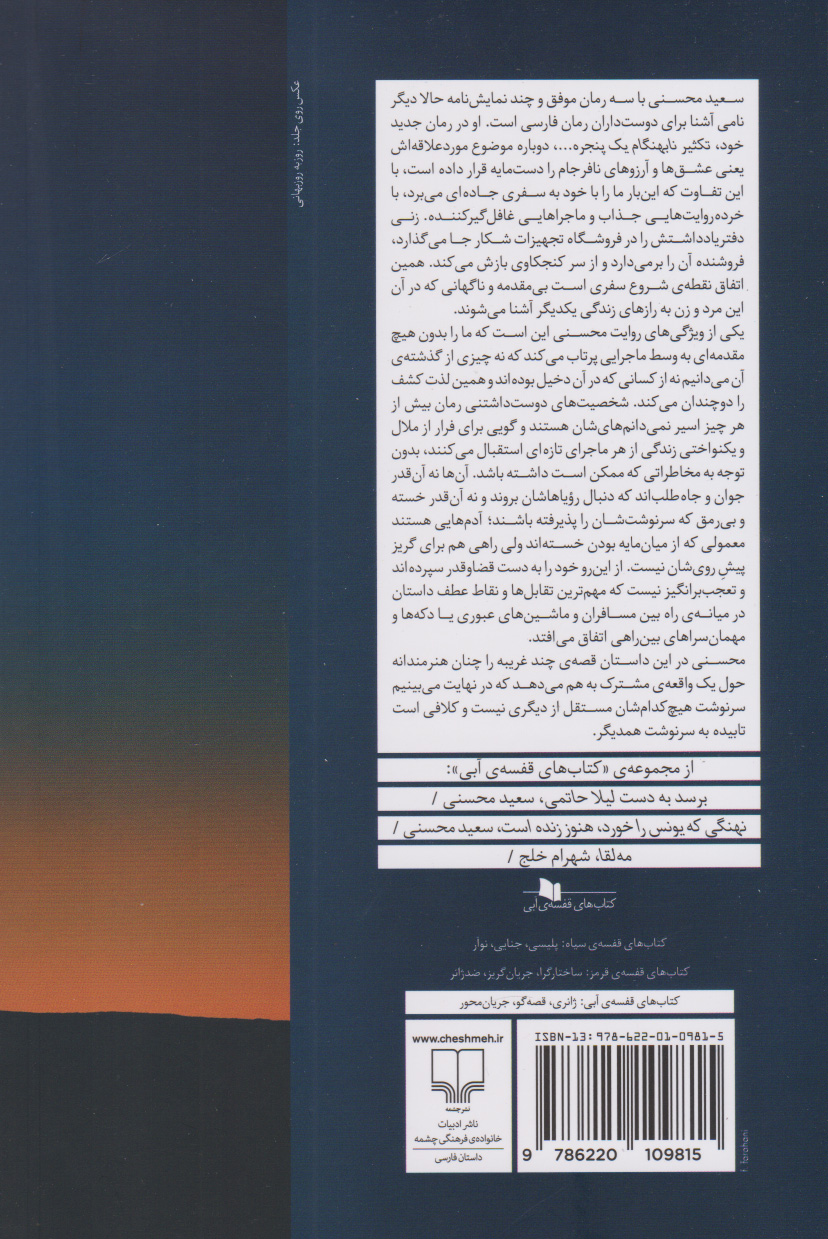 سعید محسنی با سه رمان موفق و چند نمایش‌نامه حالا دیگر
نامی آشنا برای دوست‌داران رمان فارسی است. او در رمان جدید
خود، تکثیر نابهنگام یک پنجره...، دوباره موضوع موردعلاقه‌اش
یعنی عشق‌ها و آرزوهای نافرجام را دست‌مایه قرار داده است، با
این تفاوت که این‌بار ما را با خود به سفری جاده‌ای می‌برد، با
خرده‌روایت‌هایی جذاب و ماجراهایی غافل‌گیرکننده. زنی
دفتریادداشتش را در فروشگاه تجهیزات شکار جا می‌گذارد،
فروشنده آن را برمی‌دارد و از سر کنجکاوی بازش می‌کند. همین
اتفاق نقطه‌ی شروع سفری است بی‌مقدمه و ناگهانی که در آن
این مرد و زن به رازهای زندگی یکدیگر آشنا می‌شوند.
یکی از ویژگی‌های روایت محسنی این است که ما را بدون هیچ
مقدمه‌ای به وسط ماجرایی پرتاب می‌کند که نه چیزی از گذشته‌ی
آن می‌دانیم نه از کسانی که در آن دخیل بوده‌اند و همین لذت کشف
را دوچندان می‌کند. شخصیت‌های دوست‌داشتنی رمان بیش از
هر چیز اسیر نمی‌دانم‌های‌شان هستند و گویی برای فرار از ملال
و یکنواختی زندگی از هر ماجرای تازه‌ای استقبال می‌کنند، بدون
توجه به مخاطراتی که ممکن است داشته باشد. آن‌ها نه آن‌قدر
جوان و جاه‌طلب‌اند که دنبال رؤیاهاشان بروند و نه آن‌قدر خسته
و بی‌رمق که سرنوشت‌شان را پذیرفته باشند؛ آدم‌هایی هستند
معمولی که از میان‌مایه بودن خسته‌اند ولی راهی هم برای گریز
پیشِ روی‌شان نیست. از این‌رو خود را به دست قضاوقدر سپرده‌اند
و تعجب‌برانگیز نیست که مهم‌ترین تقابل‌ها و نقاط عطف داستان
در میانه‌ی راه بین مسافران و ماشین‌های عبوری یا دکه‌ها و
مهمان‌سراهای بین‌راهی اتفاق می‌افتد.
محسنی در این داستان قصه‌ی چند غریبه را چنان هنرمندانه
حول یک واقعه‌ی مشترک به هم می‌دهد که در نهایت می‌بینیم
سرنوشت هیچ‌کدام‌شان مستقل از دیگری نیست و کلافی است
تابیده به سرنوشت همدیگر.
از مجموعه‌ی «کتاب‌های قفسه‌ی آبی»:
برسد به دست لیلا حاتمی، سعید محسنی /
نهنگی که یونس را خورد، هنوز زنده است، سعید محسنی /
مه‌لقا، شهرام خلج /
کتاب‌های قفسه‌ی آبی
کتاب‌های قفسه‌ی سیاه: پلیسی، جنایی، نوآر
کتاب‌های قفسه‌ی قرمز: ساختارگرا، جریان‌گریز، ضدژانر
کتاب‌های قفسه‌ی آبی: ژانری، قصه‌گو، جریان‌محور
ISBN-13: 978-622-01-0981-5
9 786220 109815
www.cheshmeh.ir
نشرچشمه
ناشر ادبیات
خانواده‌ی فرهنگی چشمه
داستان فارسی
عکس روی جلد: روزبه روزبهانی
f. farahani